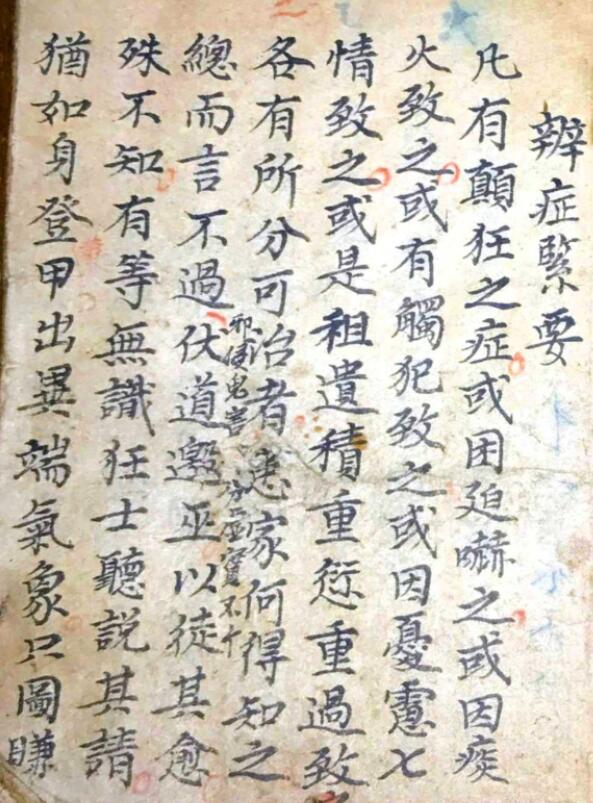 辨症緊要
凡有顛狂之症或因迫嚇之或因痰
火致之或有觸犯致之或因憂慮七
情致之或是祖遺積重愆重過致
各有所分可治者患家何得知之
總而言不過伏道邀巫以徒其愈
殊不知有等無識狂士聽説其請
猶如身登甲出異端氣象只圖賺